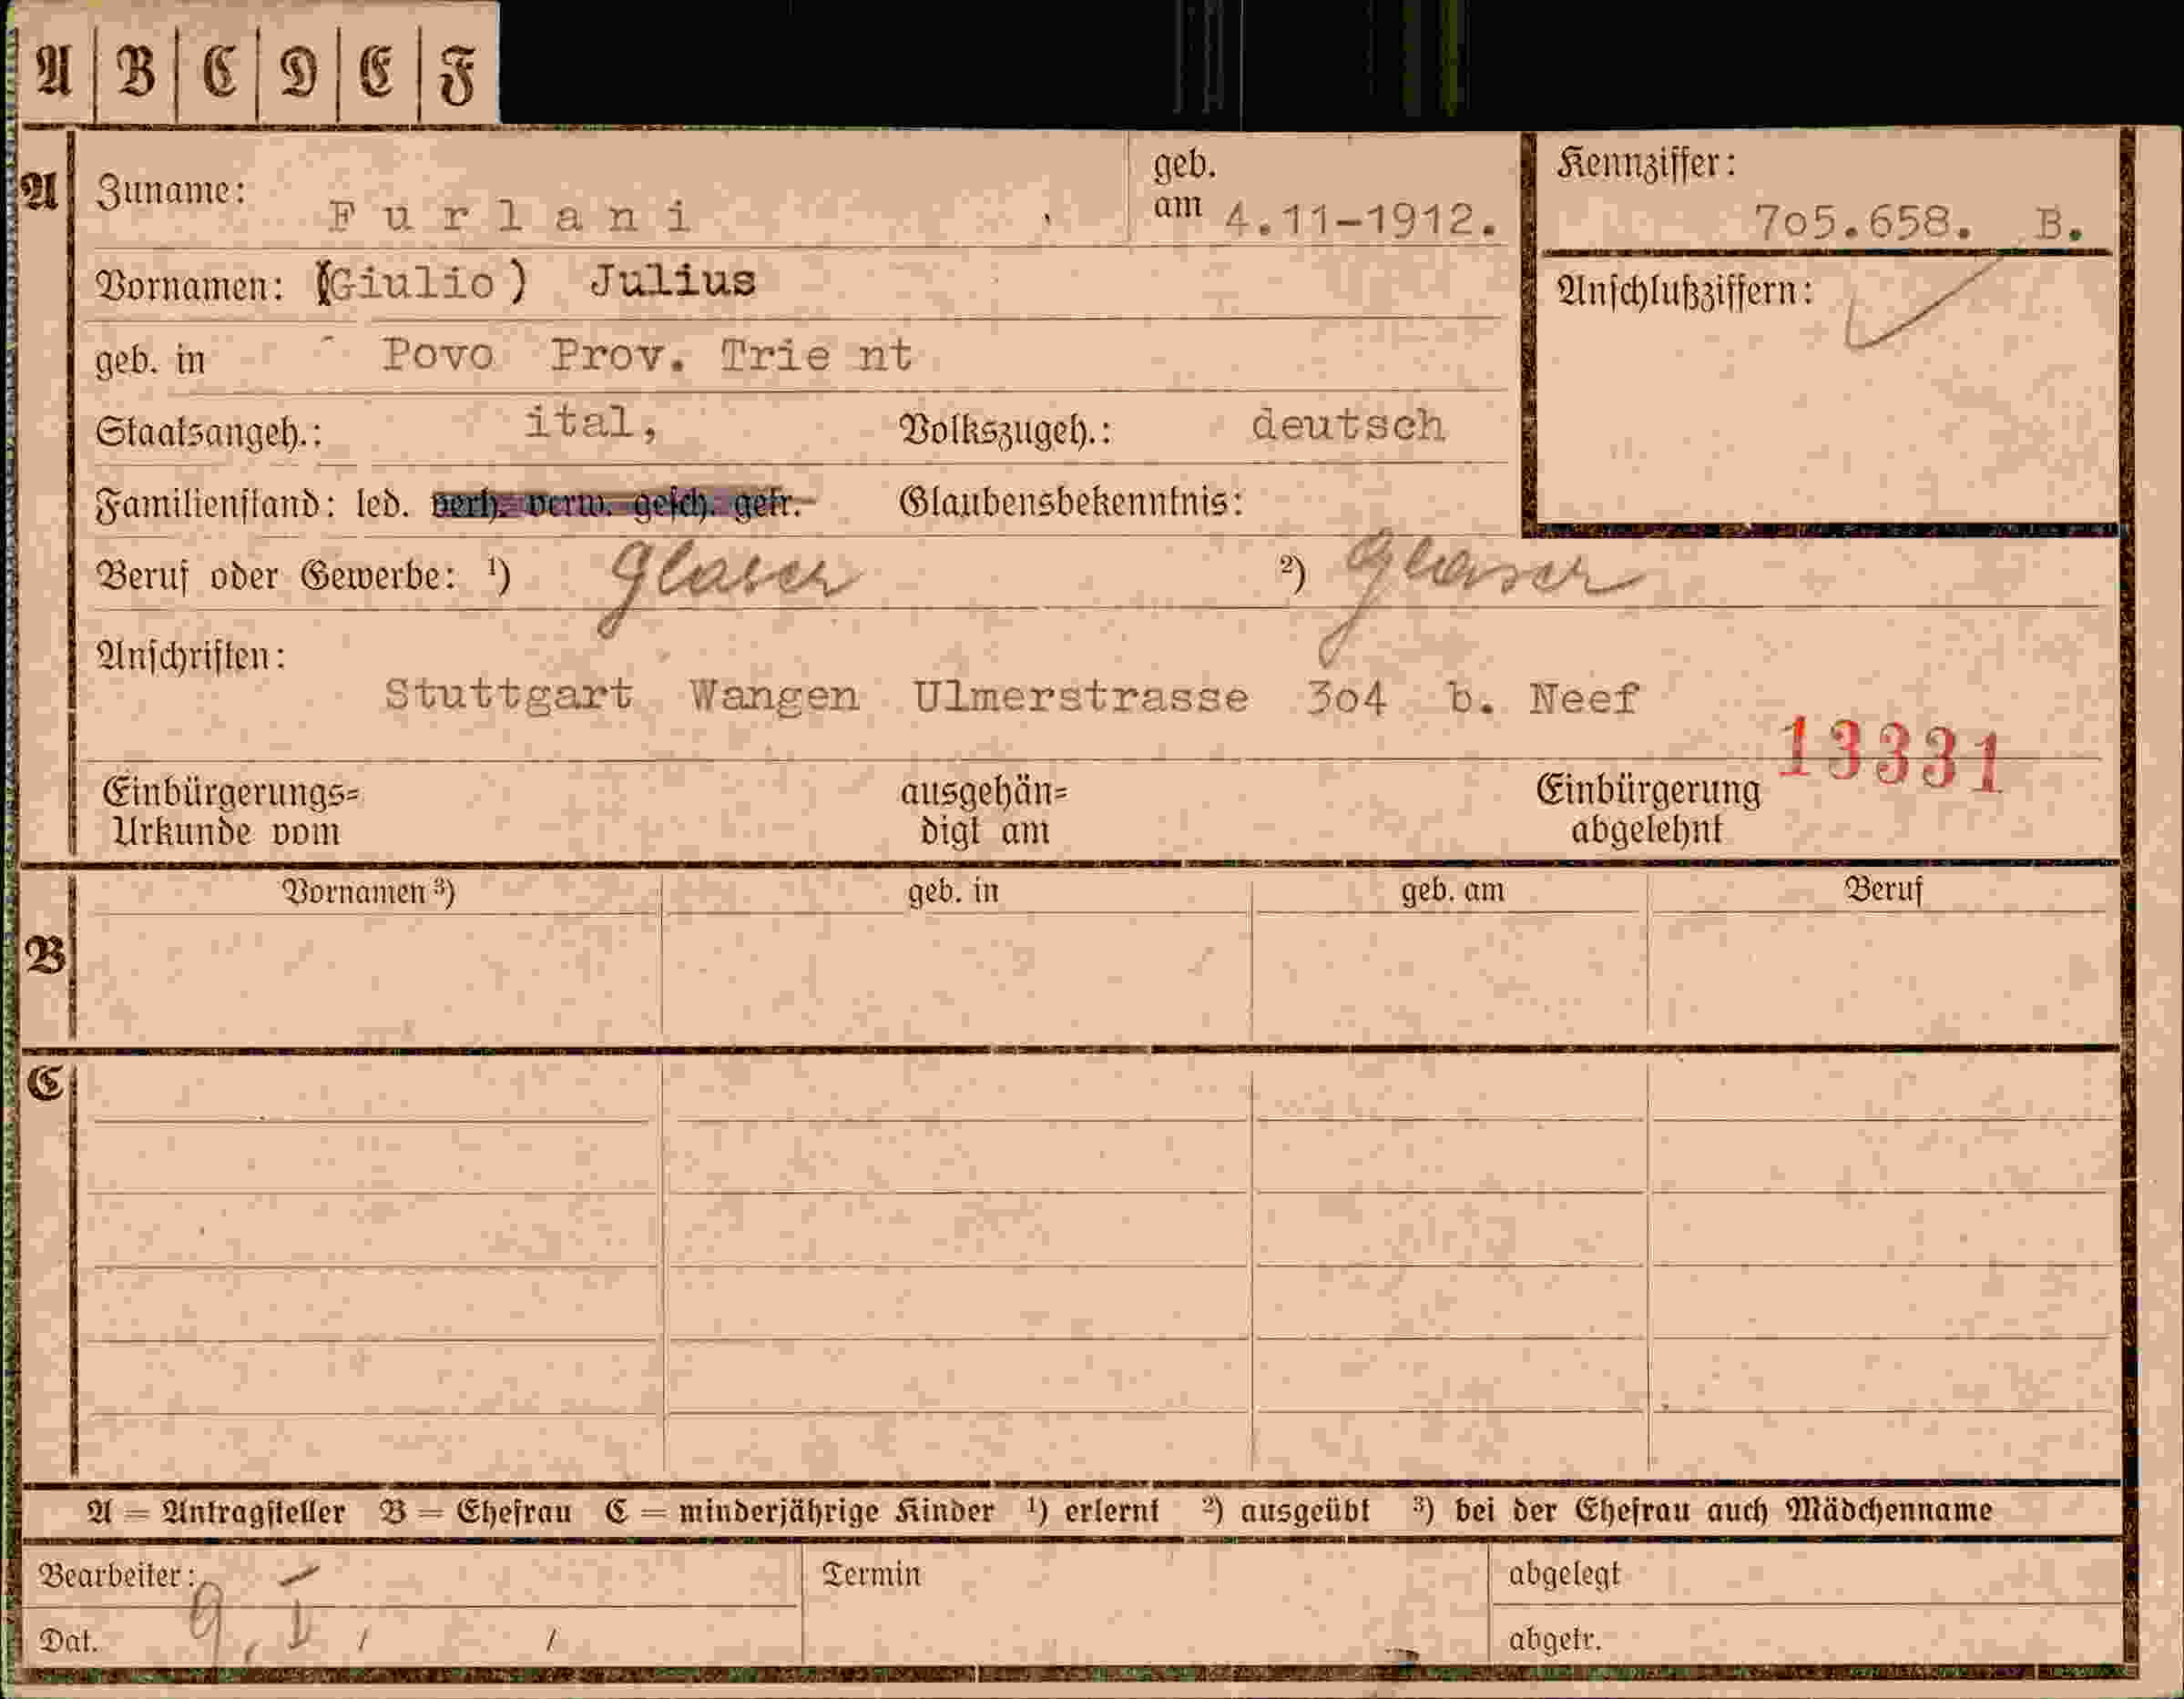 A B C D E F
A Zuname: Furlani geb. am 4.11-1912. Kennziffer: 7o5.658. B.
Vornamen: (Giulio) Julius Anschlußziffern:
geb. in Povo Prov. Trie nt
Staatsangeh.: ital, Volkszugeh.: deutsch
Familienstand: led. verh. verw. gesch. getr. Glaubensbekenntnis:
Beruf oder Gewerbe: ¹) Glaser ²) Glaser
Anschriften:
Stuttgart Wangen Ulmerstrasse 3o4 b. Neef
13331
Einbürgerungs= ausgehän= Einbürgerung
Urkunde vom digt am abgelehnt
Vornamen ³) geb. in geb. am Beruf
B
C
A = Antragsteller B = Ehefrau C = minderjährige Kinder ¹) erlernt ²) ausgeübt ³) bei der Ehefrau auch Mädchenname
Bearbeiter: Termin abgelegt
Dat. abgetr.